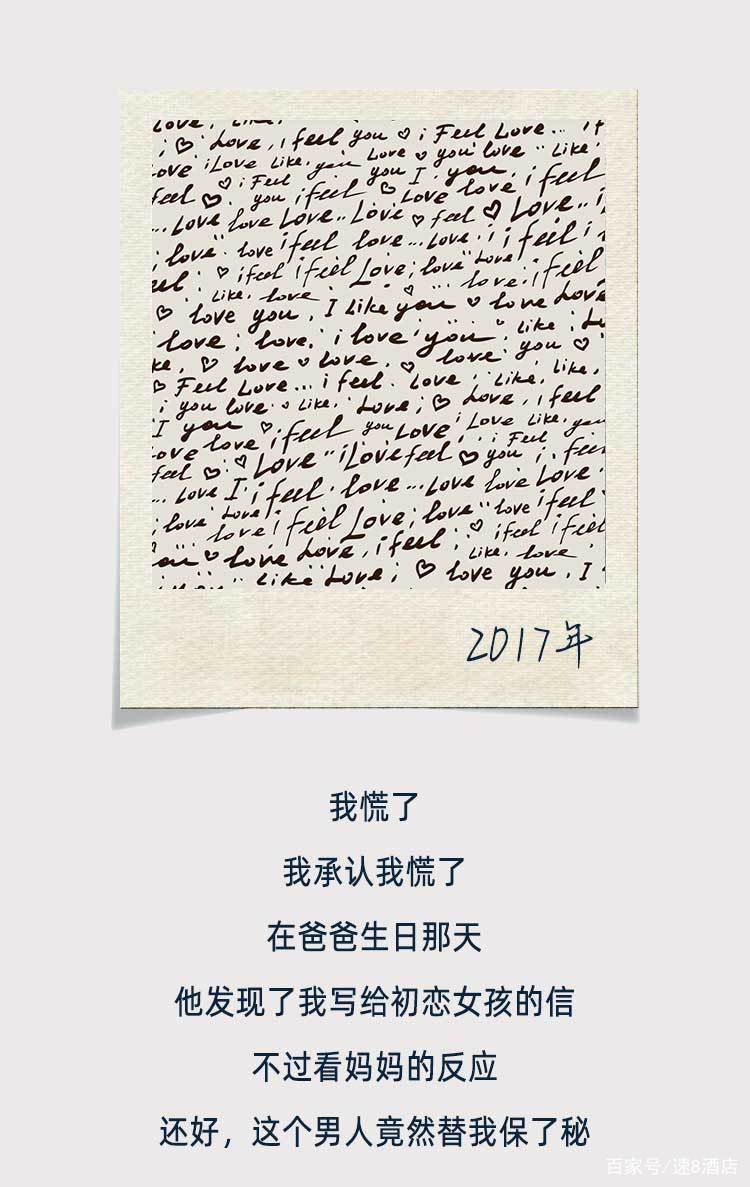 Love, Like,
i ♡ Love, i feel you ♡ i Feel Love... if
ove iLove Like, you Love ♡ you love Like,
feel ♡ ♡ i Feel you I you,
you i feel ♡ Love love i feel
...Love love Love.. Love ♡ feel ♡ Love.. i
love love i feel love... Love. i i feel i
el ♡ i feel i feel Love; love Love
Like, love ♡ love. i feel
♡ love you, I Like you ♡ love Love
love; love. i love you. Like
ke, ♡ love ♡ love, ♡ love you ♡
♡ Feel Love... i feel. Love, Like, Like,
i you love. Like, Love; ♡ Love, i feel
I you ♡ you Love, i Love Like, you
ove love i feel i Feel
feel ♡ ♡ Love iLove feel ♡ you i. feel
... Love I i feel. love... Love love Love
; love Love
love i feel Love; love love i feel
♡ love Love, i feel; ♡ i feel i feel
Like, love
Like Love; ♡ love you, I
2017年
我慌了
我承认我慌了
在爸爸生日那天
他发现了我写给初恋女孩的信
不过看妈妈的反应
还好，这个男人竟然替我保了秘
百家号/速8酒店